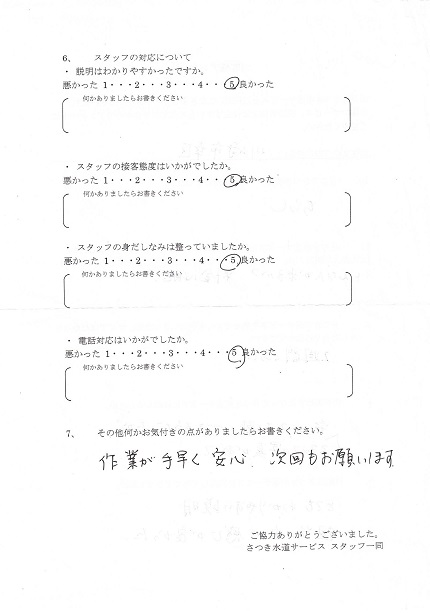 6、 スタッフの対応について
・ 説明はわかりやすかったですか。
悪かった 1・・・2・・・3・・・4・・・5 良かった
何かありましたらお書きください
・ スタッフの接客態度はいかがでしたか。
悪かった 1・・・2・・・3・・・4・・・5 良かった
何かありましたらお書きください
・ スタッフの身だしなみは整っていましたか。
悪かった 1・・・2・・・3・・・4・・・5 良かった
何かありましたらお書きください
・ 電話対応はいかがでしたか。
悪かった 1・・・2・・・3・・・4・・・5 良かった
何かありましたらお書きください
7、 その他何かお気付きの点がありましたらお書きください。
作業が手早く 安心、次回もお願いします
ご協力ありがとうございました。
さつき水道サービス スタッフ一同